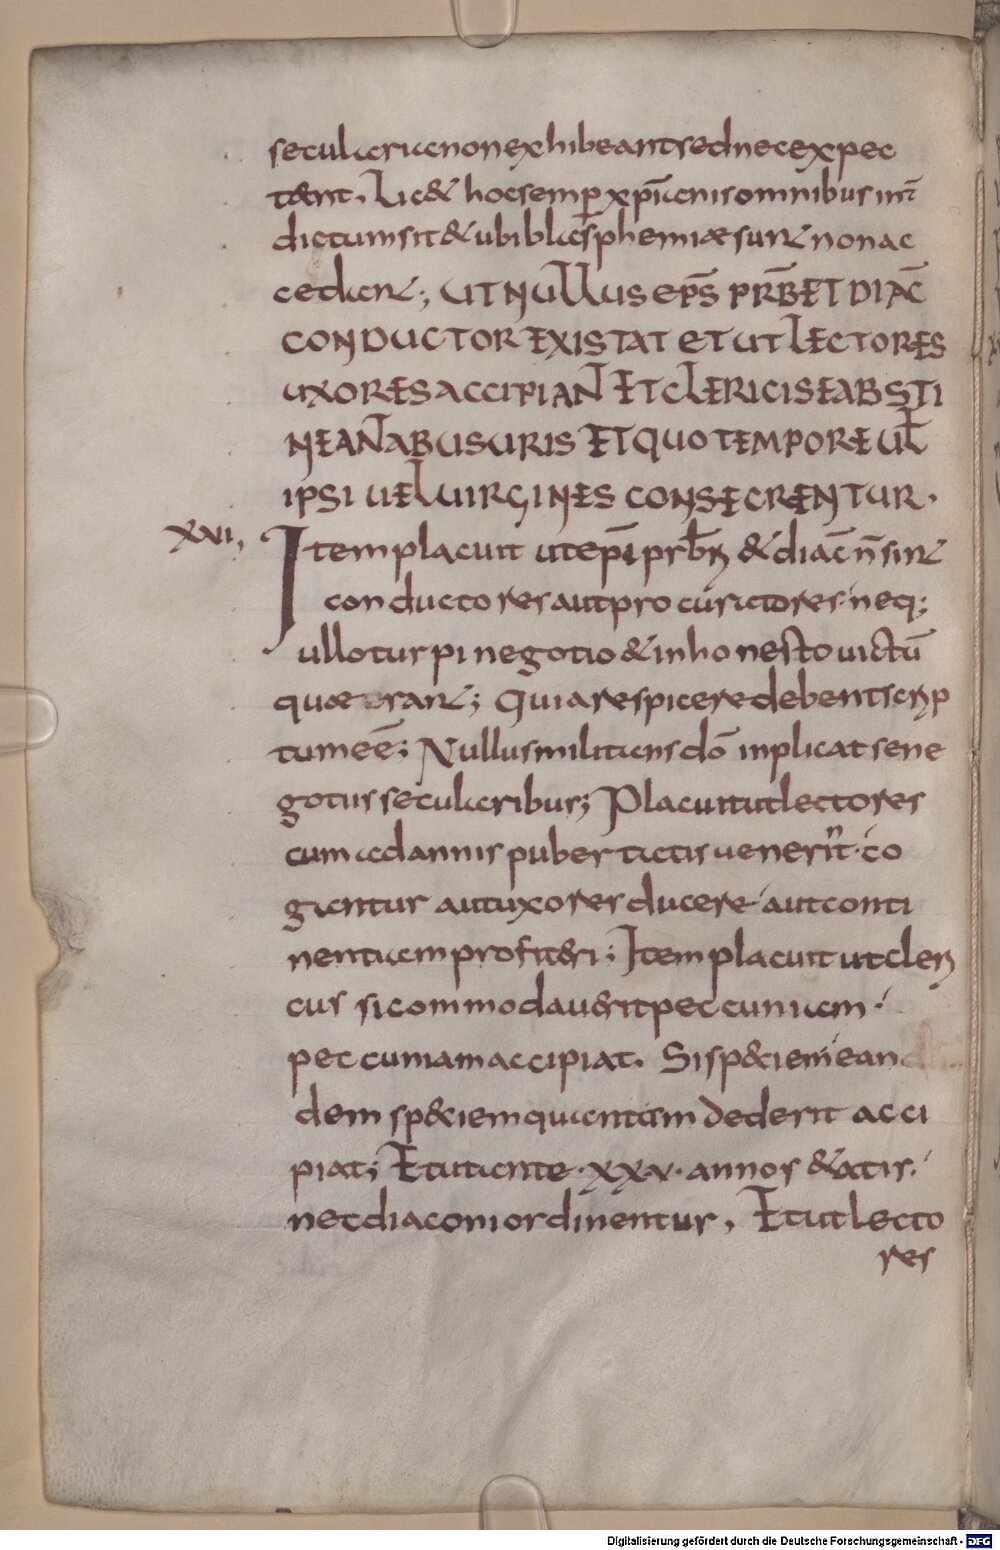 secularia non exhibeant sed nec expec
tent, Lic& hoc semp̱ xp̄ianis omnibus int̄
dictum sit & ubi blasphemiæ sunt non ac
cedant; UT NULLUS EPS̄ PRB̄ ET DIAC̄
CONDUCTOR EXISTAT ET UT LECTORES
UXORES ACCIPIANT ET CLERICI SE ABSTI
NEANT AB USURIS ET QUO TEMPORE UL̄
IPSI UEL UIRGINES CONSECRENTUR.
XVI, Item placuit ut ep̄i prb̄ri & diac̄ n̄ sint
conductores aut procuratores neq;
ullo turpi negotio & inhonesto uictū
quæ rant; Quia respicere debent scrip
tum eē; Nullus militans dō inplicat se ne
gotiis secularibus; Placuit ut lectores
cum ad annis pubertatis venerint co
gantur aut uxores ducere aut conti
nentiam profit&ri; Item placuit ut cleri
cus si commodau&rit peccuniam
peccuniam accipiat. Si sp&iem ean
dem sp&iem quantam dederit acci
piat; Et ut ante xxv annos &atis
nec diaconi ordinentur, Et ut lecto
res
Digitalisierung gefördert durch die Deutsche Forschungsgemeinschaft - DFG